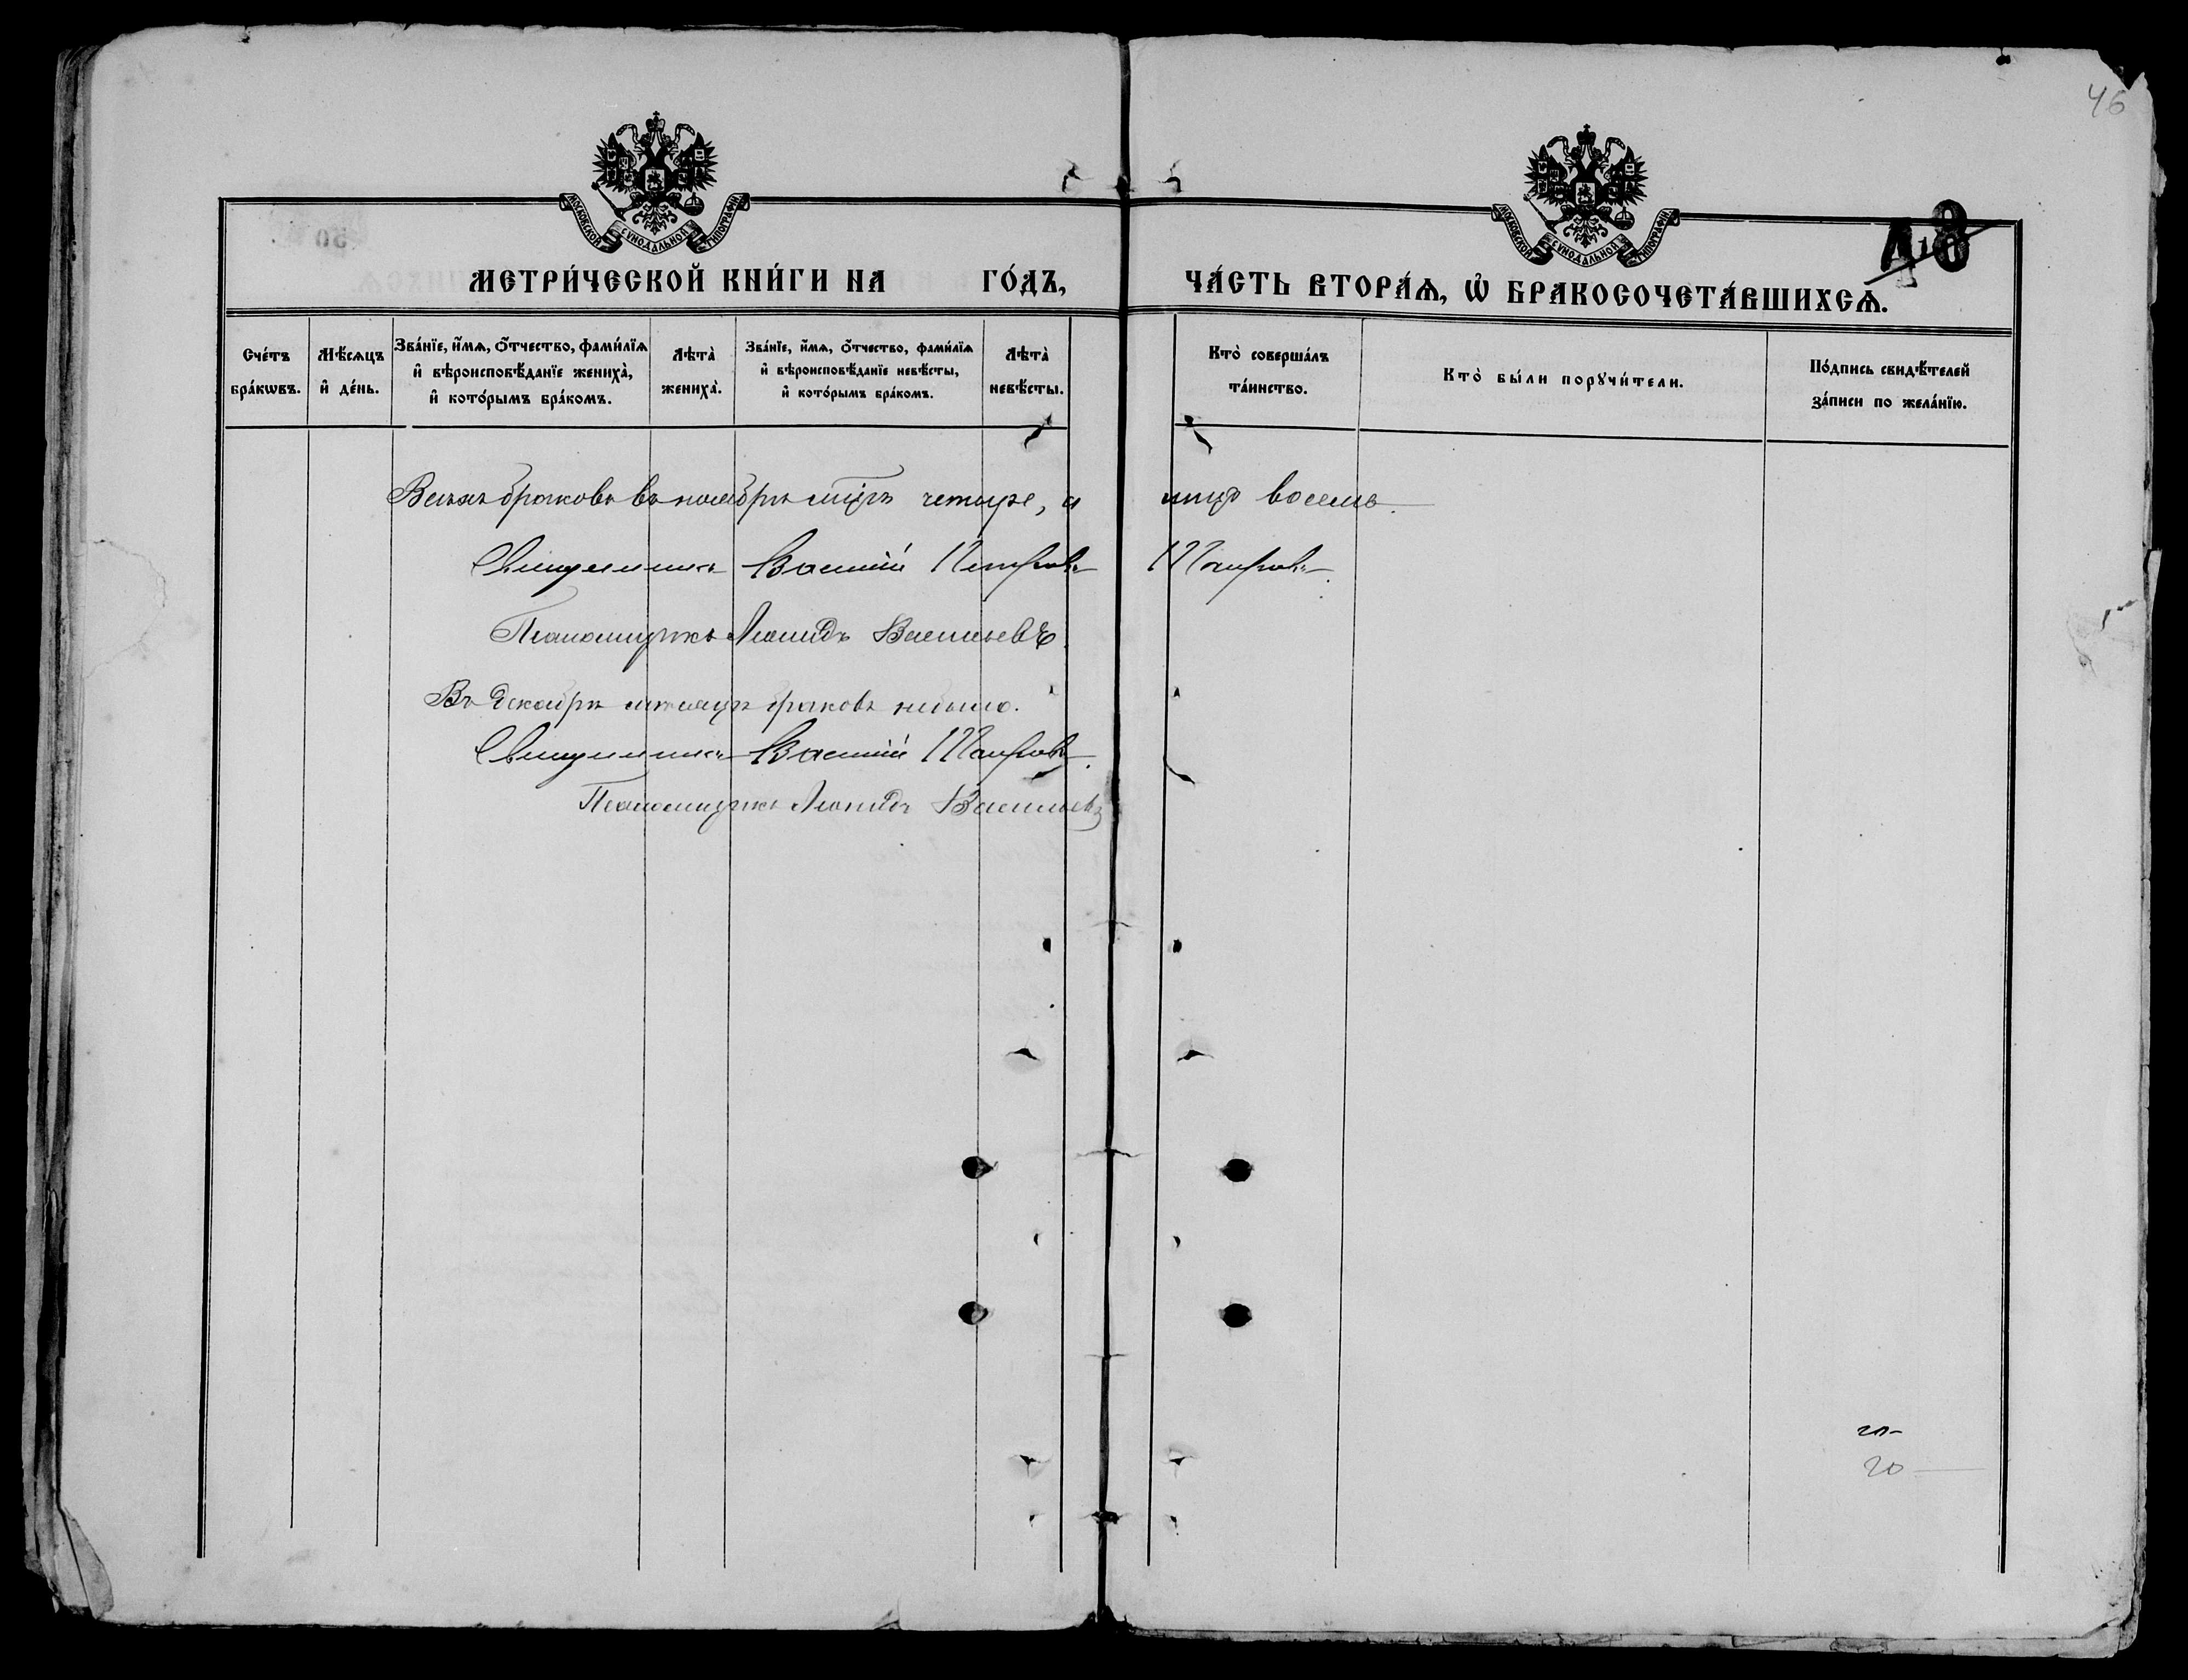 46
МОСКОВСКОЙ СУНОДАЛЬНОЙ ТИПОГРАФІИ.
МОСКОВСКОЙ СУНОДАЛЬНОЙ ТИПОГРАФІИ.
МЕТРИ́ЧЕСКОЙ КНИ́ГИ НА ГО́ДЪ,
ЧА́СТЬ ВТОРА́Ѧ, Ѽ БРАКОСОЧЕТА́ВШИХСѦ.
Сче́тъ бра́кѡвъ.
Мѣ́сѧцъ и҆ де́нь.
Зва́нїе, и҆́мѧ, ѻ҆́тчество, фами́лїѧ
и҆ вѣроисповѣ́данїе жениха̀,
и҆ кото́рымъ бра́комъ.
Лѣта̀ жениха̀.
Зва́нїе, и҆́мѧ, ѻ҆́тчество, фами́лїѧ
и҆ вѣроисповѣ́данїе невѣ́сты,
и҆ кото́рымъ бра́комъ.
Лѣта̀ невѣ́сты.
Кто̀ соверша́лъ та́инство.
Кто̀ бы́ли порꙋчи́тели.
По́дпись свидѣ́телей за́писи по жела́нїю.
Всѣхъ браковъ въ ноябрѣ мцѣ четыре, а лицъ восемь.
Священникъ Василій Петровъ
Псаломщикъ Леонидъ Васильевъ.
Въ Декабрѣ мѣсяцѣ браковъ небыло.
Священникъ Василій
Псаломщикъ Леонидъ Васильевъ
20